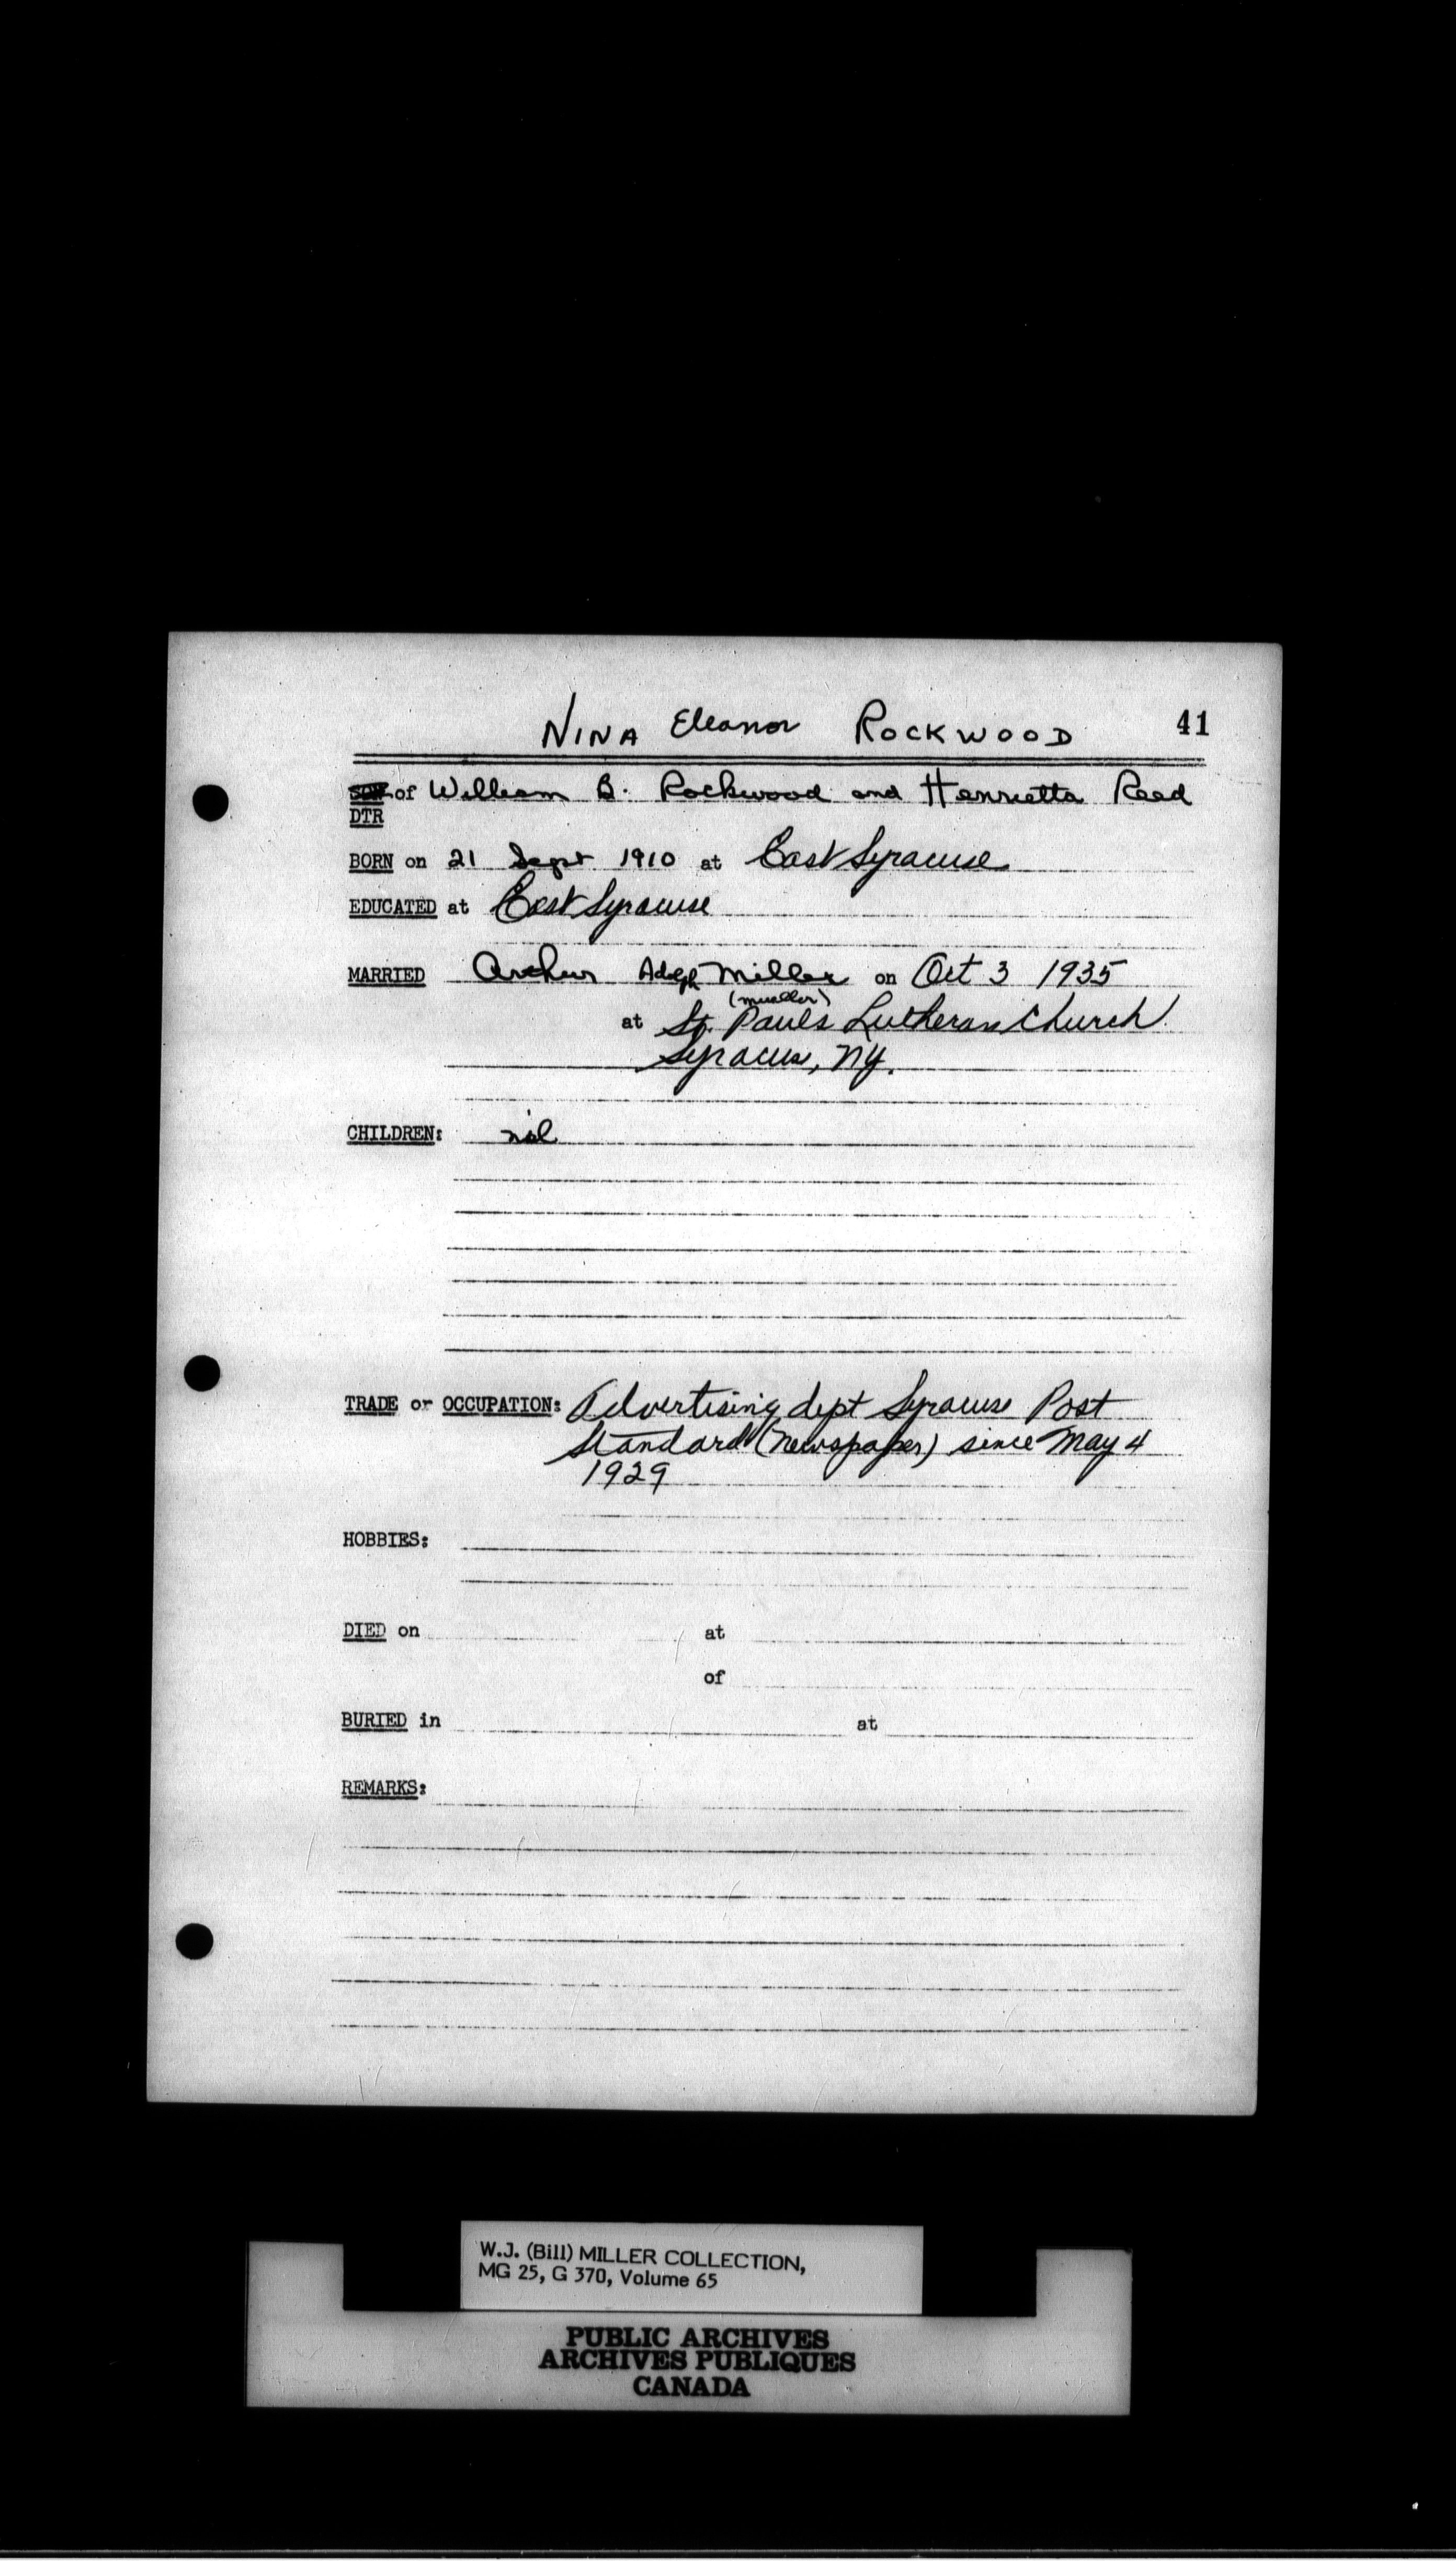 NINA Eleanor ROCKWOOD 41
SON of William B. Rockwood and Henrietta Reed
DTR
BORN on 21 Sept 1910 at East Syracuse
EDUCATED at East Syracuse
MARRIED Arthur Adolph Miller on Oct 3 1935
(mueller)
at St. Pauls Lutheran Church
Syracuse, NY.
CHILDREN: nil
TRADE or OCCUPATION: Advertising dept Syracuse Post
Standard (newspaper) since May 4
1929
HOBBIES:
DIED on at
of
BURIED in at
REMARKS:
W.J. (Bill) MILLER COLLECTION,
MG 25, G 370, Volume 65
PUBLIC ARCHIVES
ARCHIVES PUBLIQUES
CANADA